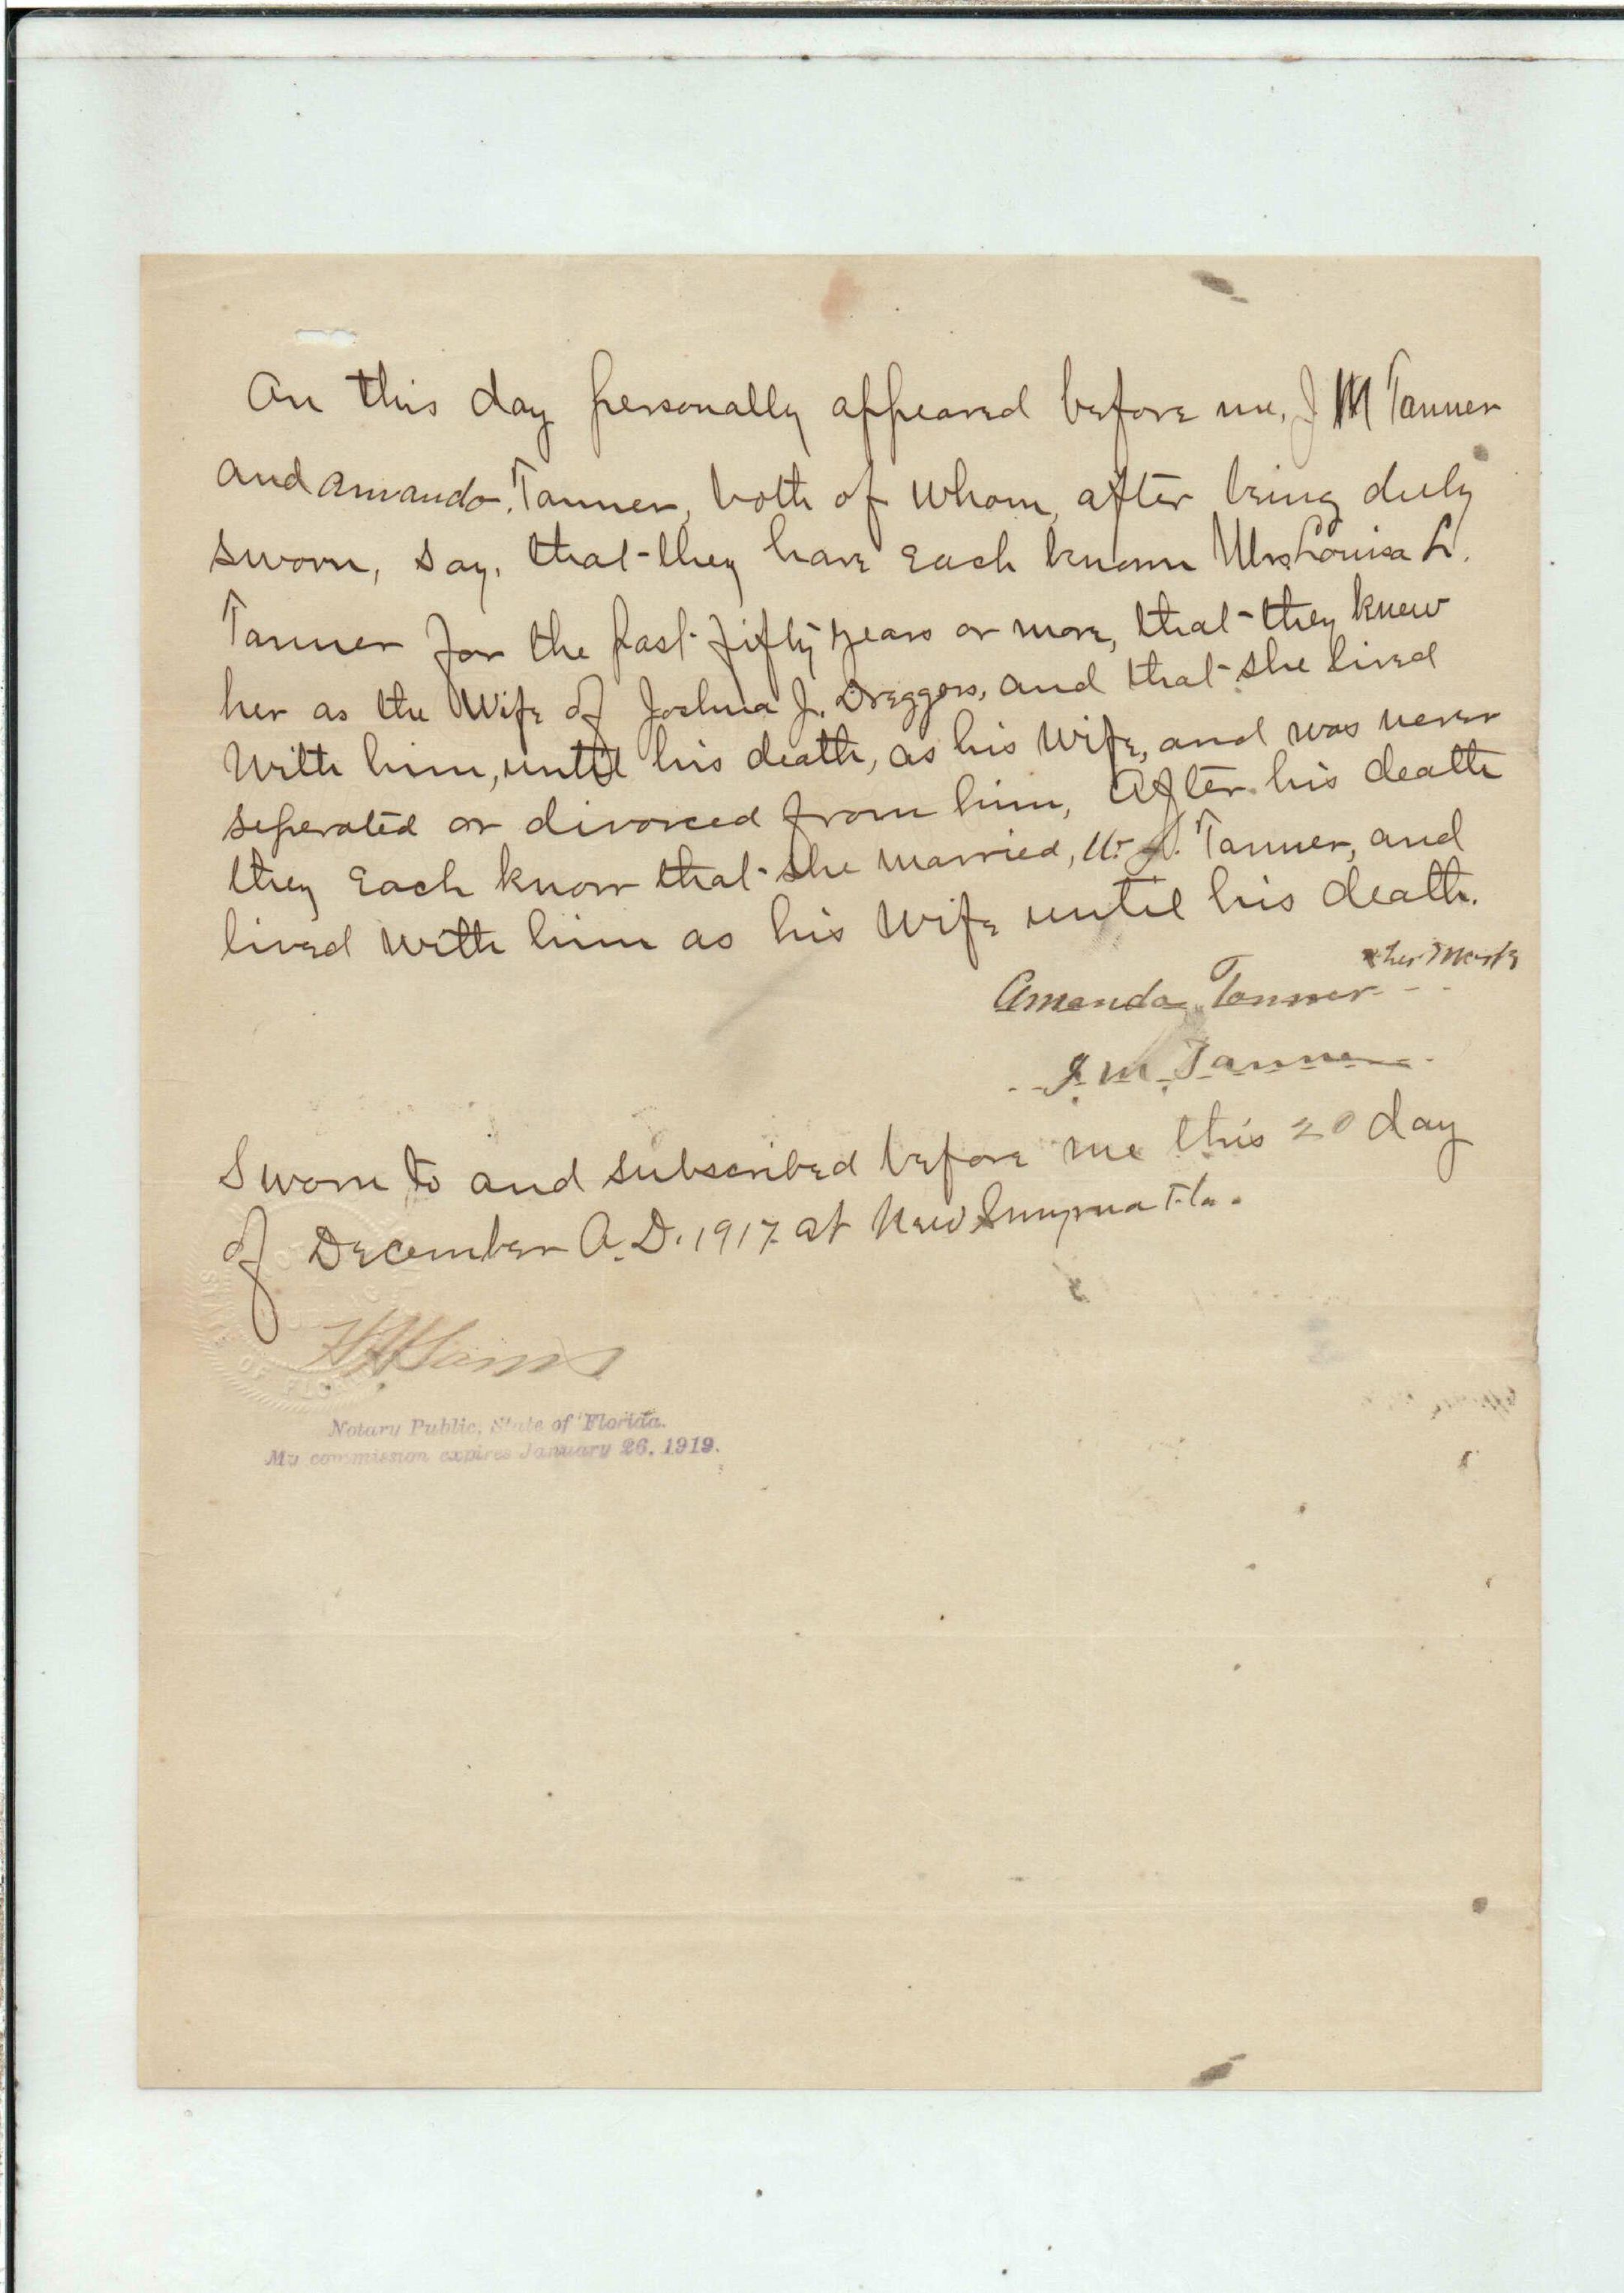 On this day personally appeared before me, J M Tanner
and Amanda Tanner, both of whom, after being duly
sworn, say, that they have each known Mrs Louisa L.
Tanner for the past fifty years or more, that they knew
her as the Wife of Joshua J. Dreggors, and that she lived
With him, until his death, as his Wife, and was never
seperated or divorced from him, After his death
they each know that she married, Tanner, and
lived with him as his Wife until his death.
x her mark
Amanda Tanner
J. M. Tanner
Sworn to and subscribed before me this 20 day
of December A.D. 1917 at New Smyrna Fla.
STATE OF FLORIDA
Notary Public, State of Florida.
My commission expires January 26, 1919.